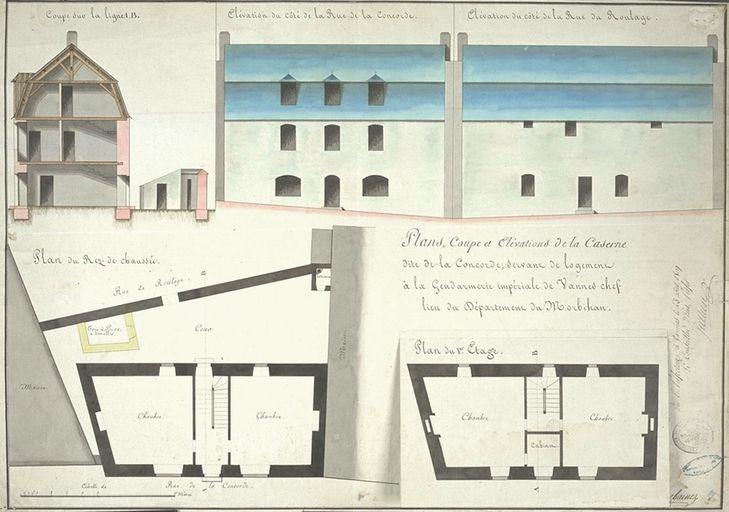 Coupe sur la ligne A.B.
Elévation du côté de la Rue de la Concorde.
Elévation du côté de la Rue du Roulage.
Plans, Coupe et Elévations de la Caserne
dite de la Concorde, servant de logement
à la Gendarmerie impériale de Vannes chef
lieu du Département du Morbihan.
Plan du Rez-de chaussée.
Rue du Roulage.
B.
Cour
Maison
Maison
Chambre.
Chambre.
Rue de la Concorde.
A.
Echelle de
Plan du 1er Etage.
B.
Chambre
Chambre
Cabinet
A.